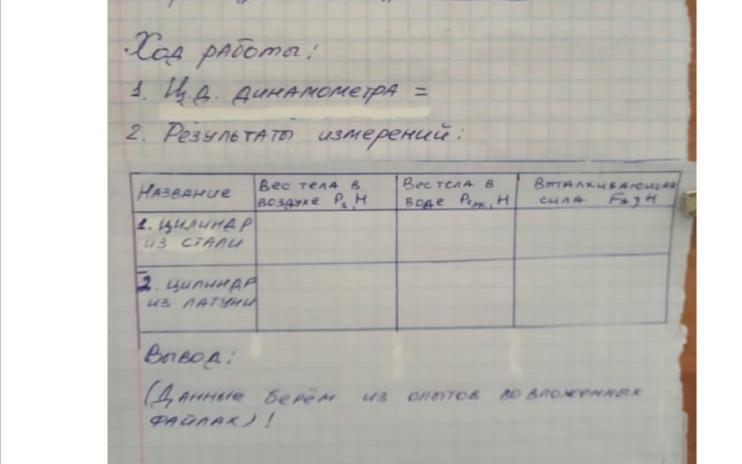 Ход работы:
1. Ц.д. динамометра =
2. Результаты измерений:
Название
Вес тела в
воздухе P₁, Н
Вес тела в
воде P₁ж, Н
Выталкивающая
сила Fa, Н
1. цилиндр
из стали
2. цилиндр
из латуни
Вывод:
(Данные берём из опытов во вложенных
файлах)!